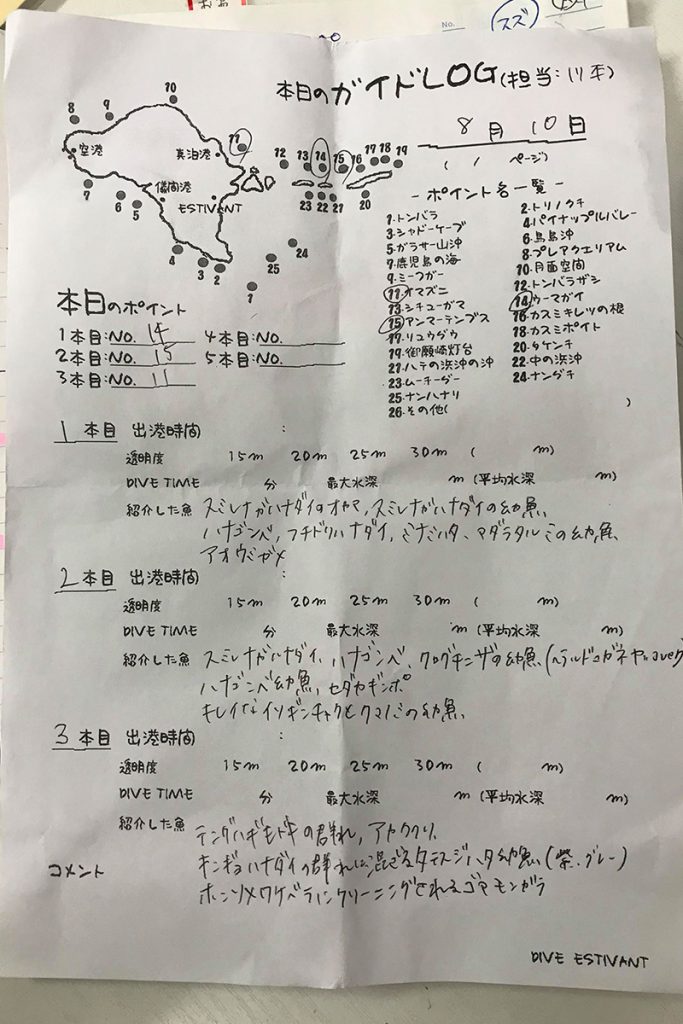 No.
スズ
本日のガイドLOG(担当:川平)
8月10日
( 1 ページ)
10
8 9
11
空港
真泊港
12 13 14 15 16 17 18 19
7
6 5
儀間港
ESTIVANT
23 22 21
20
24
4
3 2
25
1
- ポイント名一覧 -
1.トンバラ 2.トリノクチ
3.シャドーケーブ 4.パイナップルバレー
5.ガラサー山沖 6.鳥島沖
7.鹿児島の海 8.プレアクエリアム
9.ミーフガー 10.月面空間
11.オマズニ 12.トンバラザシ
13.シチューガマ 14.ウーマガイ
15.アンマーテンプス 16.カスミキレツの根
17.リュウグウ 18.カスミポイト
19.御願崎灯台 20.タケンチ
21.ハテの浜沖の沖 22.中の浜沖
23.ムーチーグー 24.ナングチ
25.ナンハナリ
26.その他( )
本日のポイント
1本目:NO. 14 4本目:NO.
2本目:NO. 15 5本目:NO.
3本目:NO. 11
1本目 出港時間 :
透明度 15m 20m 25m 30m ( m)
DIVE TIME 分 最大水深 m (平均水深 m)
紹介した魚 スミレナガハナダイのオヤマ,スミレナガハナダイの幼魚,
ハナゴンベ,フチドリハナダイ,ミナミハタ、マダラタルミの幼魚,
アオウミガメ
2本目 出港時間 :
透明度 15m 20m 25m 30m ( m)
DIVE TIME 分 最大水深 m (平均水深 m)
紹介した魚 スミレナガハナダイ,ハナゴンベ,クログチニザの幼魚,(ヘラルドコガネヤッコver)
ハナゴンベ幼魚,セダカギンポ
キレイなイソギンチャクとクマノミの幼魚,
3本目 出港時間 :
透明度 15m 20m 25m 30m ( m)
DIVE TIME 分 最大水深 m (平均水深 m)
紹介した魚 テングハギモドキの群れ,アヤコクリ,
キンギョハナダイの群れに混ざるタテスジハタ幼魚,(紫、グレー)
コメント
ホンソメワケベラにクリーニングされるゴマモンガラ
DIVE ESTIVANT